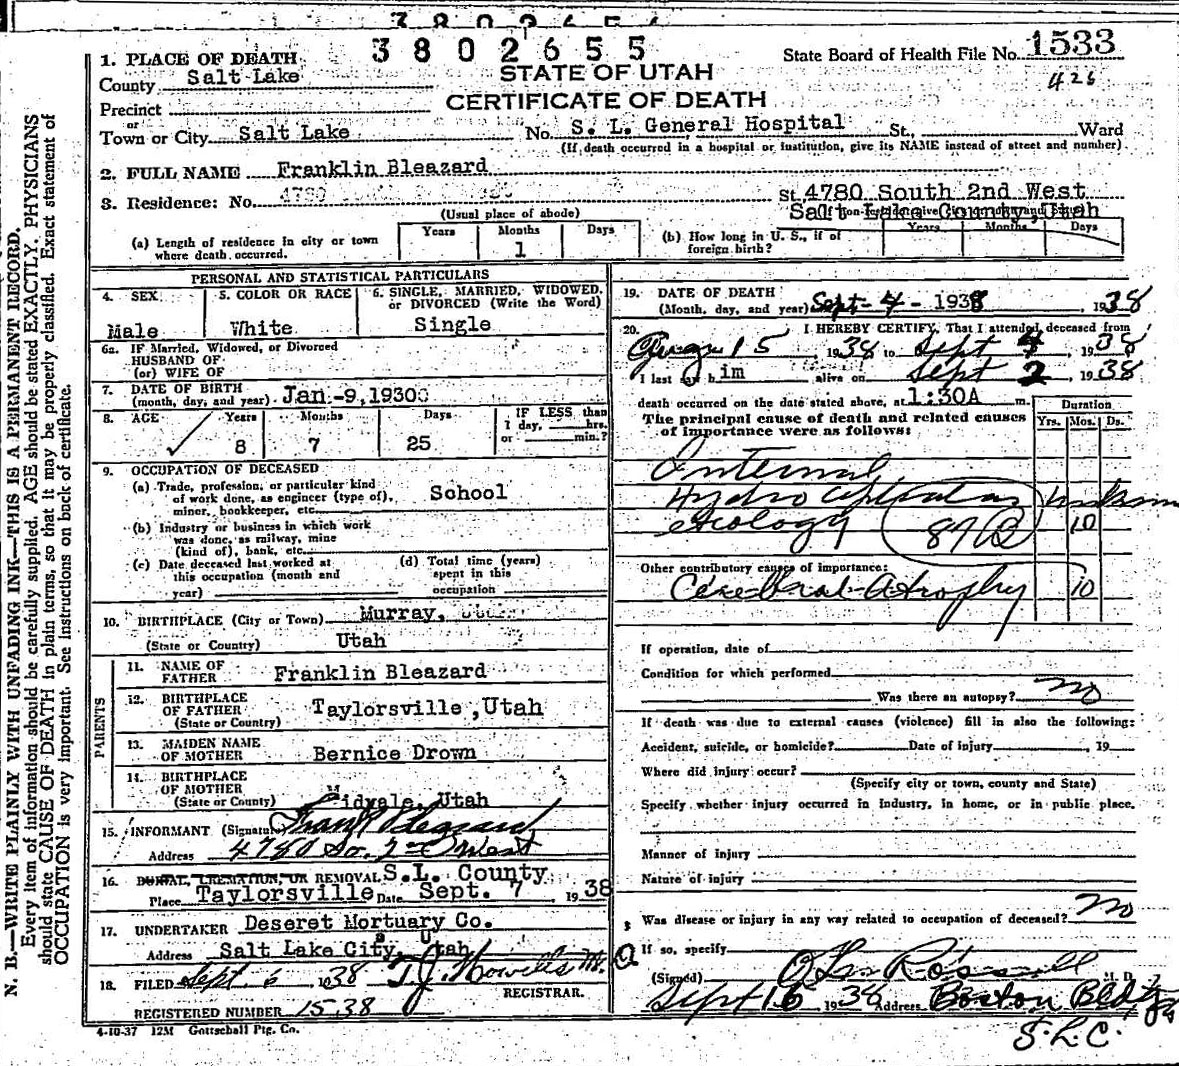 3802655
1. PLACE OF DEATH
State Board of Health File No. 1533
County Salt Lake
STATE OF UTAH
426
Precinct
CERTIFICATE OF DEATH
or
Town or City Salt Lake No. S. L. General Hospital St., Ward
(If death occurred in a hospital or institution, give its NAME instead of street and number)
2. FULL NAME Franklin Bleazard
3. Residence: No. 4780 St. 4780 South 2nd West
Salt Lake County, Utah
(Usual place of abode)
(a) Length of residence in city or town where death occurred. Years Months 1 Days
(b) How long in U. S., if of foreign birth? Years Months Days
PERSONAL AND STATISTICAL PARTICULARS
4. SEX Male
5. COLOR OR RACE White
6. SINGLE, MARRIED, WIDOWED, or DIVORCED (Write the Word) Single
6a. If Married, Widowed, or Divorced
HUSBAND OF
(or) WIFE OF
7. DATE OF BIRTH
(month, day, and year) Jan.-9,1930
8. AGE Years 8 Months 7 Days 25
IF LESS than 1 day, hrs. or min.?
9. OCCUPATION OF DECEASED
(a) Trade, profession, or particular kind of work done, as engineer (type of), miner, bookkeeper, etc. School
(b) Industry or business in which work was done, as railway, mine (kind of), bank, etc.
(c) Date deceased last worked at this occupation (month and year)
(d) Total time (years) spent in this occupation
10. BIRTHPLACE (City or Town) Murray,
(State or Country) Utah
PARENTS
11. NAME OF FATHER Franklin Bleazard
12. BIRTHPLACE OF FATHER (State or Country) Taylorsville, Utah
13. MAIDEN NAME OF MOTHER Bernice Drown
14. BIRTHPLACE OF MOTHER (State or Country) Midvale, Utah
15. INFORMANT (Signature) Frank Bleazard
Address 4780 So. 2nd West
16. BURIAL, CREMATION, OR REMOVAL S.L. County
Place Taylorsville Date Sept. 7, 1938
17. UNDERTAKER Deseret Mortuary Co.
Address Salt Lake City, Utah
18. FILED Sept. 6 1938 T.J. Howells
REGISTRAR.
REGISTERED NUMBER 1538
4-10-37 12M Gottschall Ptg. Co.
19. DATE OF DEATH
(Month, day, and year) Sept-4-1938, 1938
20. I HEREBY CERTIFY, That I attended deceased from
Aug 15, 1938 to Sept 4, 1938
I last saw him alive on Sept 2, 1938
death occurred on the date stated above, at 1:30A m.
The principal cause of death and related causes of importance were as follows:
Duration
Yrs. Mos. Ds.
Internal
Hydrocephalus
etiology 10
Other contributory causes of importance:
Cerebral Atrophy 10
If operation, date of
Condition for which performed
Was there an autopsy? no
If death was due to external causes (violence) fill in also the following:
Accident, suicide, or homicide? Date of injury , 19
Where did injury occur?
(Specify city or town, county and State)
Specify whether injury occurred in Industry, in home, or in public place.
Manner of injury
Nature of injury
Was disease or injury in any way related to occupation of deceased? no
If so, specify
(Signed) M. D.
Sept 16, 1938 Address Boston Bldg
S.L.C.
N. B.—WRITE PLAINLY WITH UNFADING INK—THIS IS A PERMANENT RECORD.
Every item of information should be carefully supplied. AGE should be stated EXACTLY. PHYSICIANS
should state CAUSE OF DEATH in plain terms, so that it may be properly classified. Exact statement of
OCCUPATION is very important. See instructions on back of certificate.